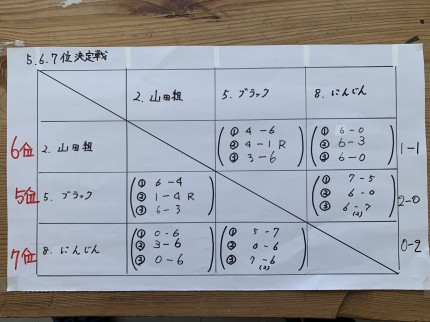 5.6.7位決定戦
2. 山田組 5. ブラック 8. にんじん
6位 2. 山田組 ① 4-6 ① 6-0
② 4-1 R ② 6-3 1-1
③ 3-6 ③ 6-0
5位 5. ブラック ① 6-4 ① 7-5
② 1-4 R ② 6-0 2-0
③ 6-3 ③ 6-7 (2)
7位 8. にんじん ① 0-6 ① 5-7
② 3-6 ② 0-6 0-2
③ 0-6 ③ 7-6 (2)